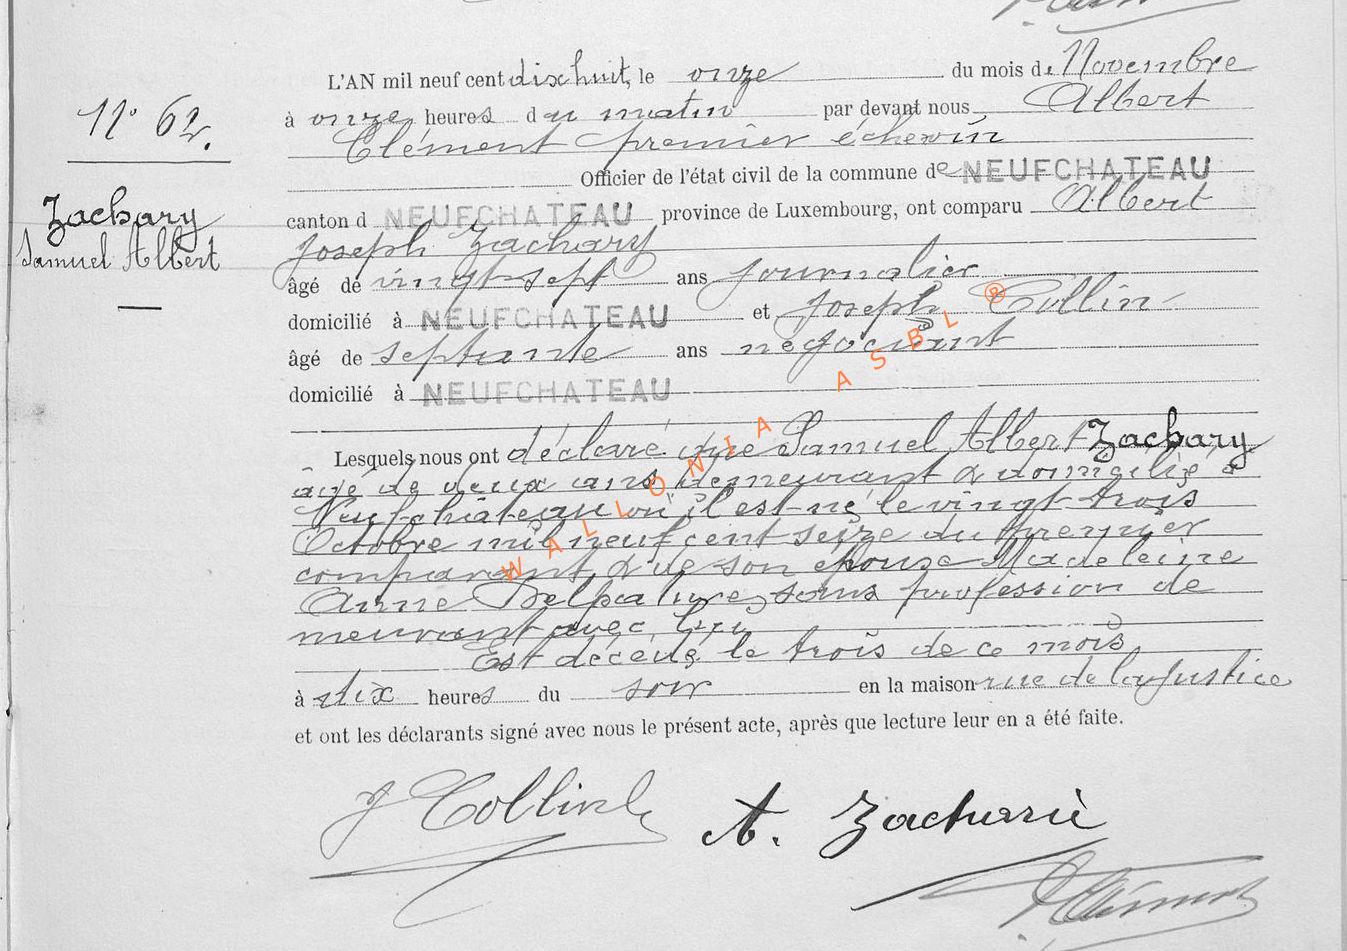 L'AN mil neuf cent dix huit, le onze du mois de Novembre
N° 62.
à onze heures du matin par devant nous Albert
Clément premier échevin
Officier de l'état civil de la commune de NEUFCHATEAU
Zachary
Samuel Albert
canton d NEUFCHATEAU province de Luxembourg, ont comparu Albert
Joseph Zachary
âgé de vingt-sept ans journalier
domicilié à NEUFCHATEAU et Joseph Collin
âgé de septante ans négociant
domicilié à NEUFCHATEAU
Lesquels nous ont déclaré que Samuel Albert Zachary
âgé de deux ans demeurant & domicilié à
Neufchâteau où il est né le vingt trois
Octobre mil neuf cent seize du premier
comparant & de son épouse Madeleine
Anne sans profession de
meurant avec lui
Est décédé le trois de ce mois
à dix heures du soir en la maison rue de la Justice
et ont les déclarants signé avec nous le présent acte, après que lecture leur en a été faite.
J Collin
A. Zacharie
Clément
WALLONIA ASBL ®